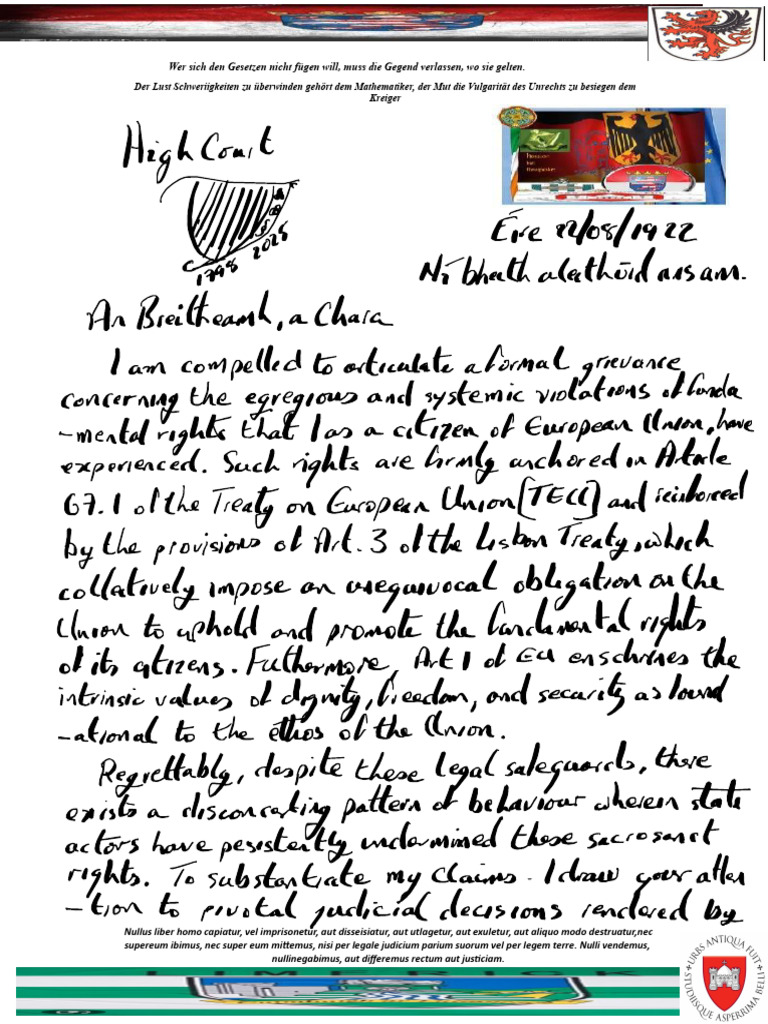 Wer sich den Gesetzen nicht fügen will, muss die Gegend verlassen, wo sie gelten.
Der Lust Schweriigkeiten zu überwinden gehört dem Mathematiker, der Mut die Vulgarität des Unrechts zu besiegen dem
Kreiger
High Court
1798 2025
Éire 22/08/1922
Ní bheith aleithéid
An Breitheamh, a Chara
I am compelled to articulate a formal grievance
concerning the egregious and systemic violations of funda
-mental rights that I as a citizen of European Union, have
experienced. Such rights are firmly anchored in Article
67.1 of the Treaty on European Union [TEU] and reinforced
by the provisions of Art. 3 of the Lisbon Treaty, which
collatively impose an unequivocal obligation on the
Union to uphold and promote the fundmental rights
of its citizens. Futhermore, Art 1 of EU enschrines the
intrinsic values of dignity, freedom, and security as found
-ational to the ethos of the Union.
Regrettably, despite these legal safeguards, there
exists a disconcerting pattern of behaviour wherein state
actors have pesistently undermined these sacrosanct
rights. To substantiate my claims - I draw your atten
-tion to pivotal judicial decisions rendered by
Nullus liber homo capiatur, vel imprisonetur, aut disseisiatur, aut utlagetur, aut exuletur, aut aliquo modo destruatur,nec
supereum ibimus, nec super eum mittemus, nisi per legale judicium parium suorum vel per legem terre. Nulli vendemus,
nullinegabimus, aut differemus rectum aut justiciam.
LIMERICK
URBS ANTIQUA FUIT
STUDIISQUE ASPERRIMA BELLI